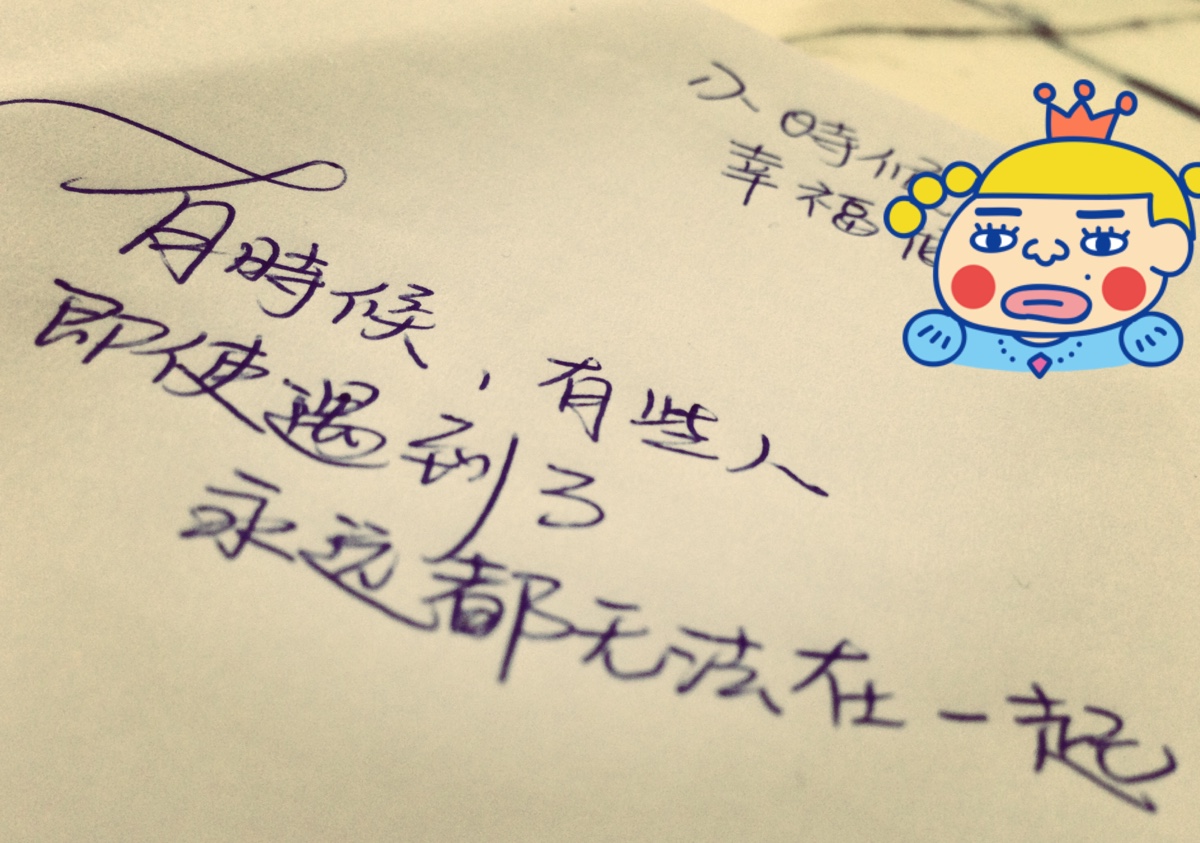 有時候，有些人
即使遇到了
永远都无法在一起
小時候
幸福